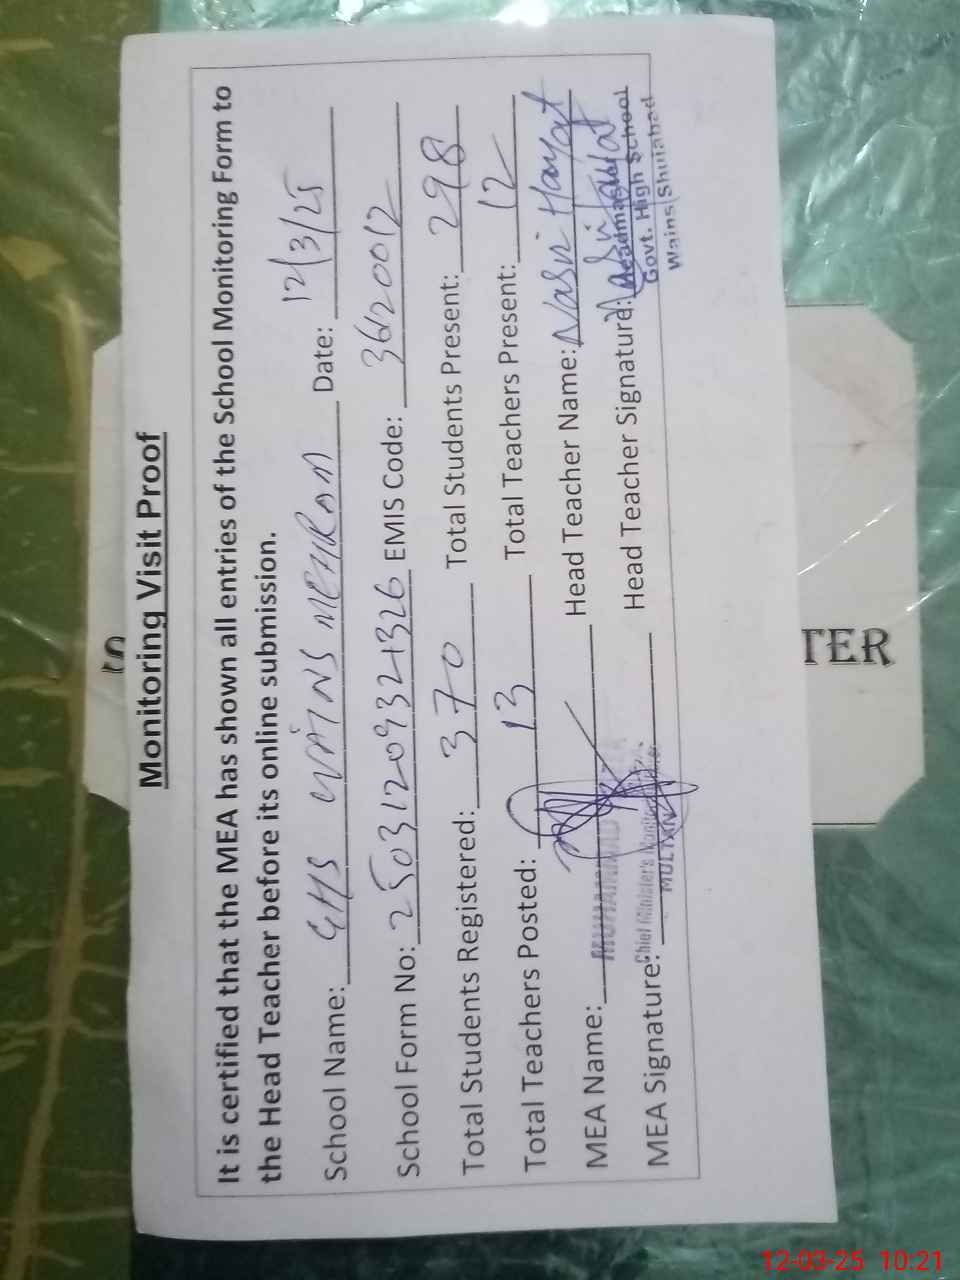 Monitoring Visit Proof
It is certified that the MEA has shown all entries of the School Monitoring Form to
the Head Teacher before its online submission.
School Name: GHS WAINS MEHRAM Date: 12/3/25
School Form No: 250312093241326 EMIS Code: 36120012
Total Students Registered: 370 Total Students Present: 298
Total Teachers Posted: 13 Total Teachers Present: 12
MEA Name: MUHAMMAD Head Teacher Name: Nasir Hayat
MEA Signature: Chief Minister's MULTAN Head Teacher Signature: Nasir Hayat
Headmaster
Govt. High School
Wains(Shujabad
TER
12-03-25 10:21